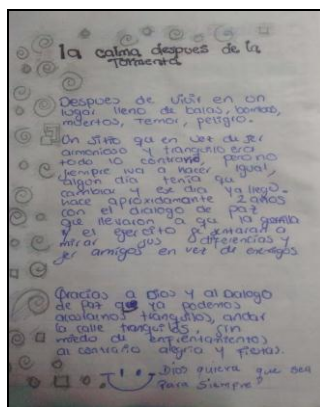 la calma despues de la
Tormenta
Despues de vivir en un
lugar lleno de balas, bombas,
muertos, Temor, peligro.
Un sitio qu en vez de ser
armonioso y tranquilo era
todo lo contrario, pero no
siempre iva a hacer igual,
algun dia tenia que
cambiar y ese dia ya llego.
hace aproxidamante 2 años
con el dialogo de paz
que llevaron a que la guerrilla
y el ejercito se sentaran a
mirar sus diferencias y
ser amigos en vez de enemigos
Gracias a Dios y al Dialogo
de paz que ya podemos
acostarnos tranquilos, andar
la calle tranquilos, sin
miedo de enfrentamientos
al contrario alegria y fiestas.
Dios quiera que sea
para siempre